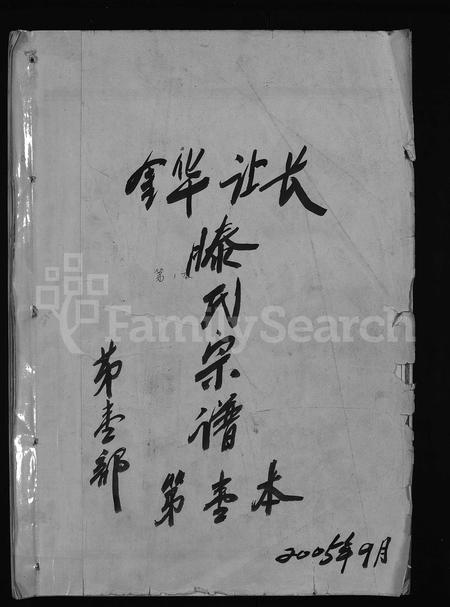 金华让长
滕氏宗谱
第壹部
第壹本
2005年9月
FamilySearch